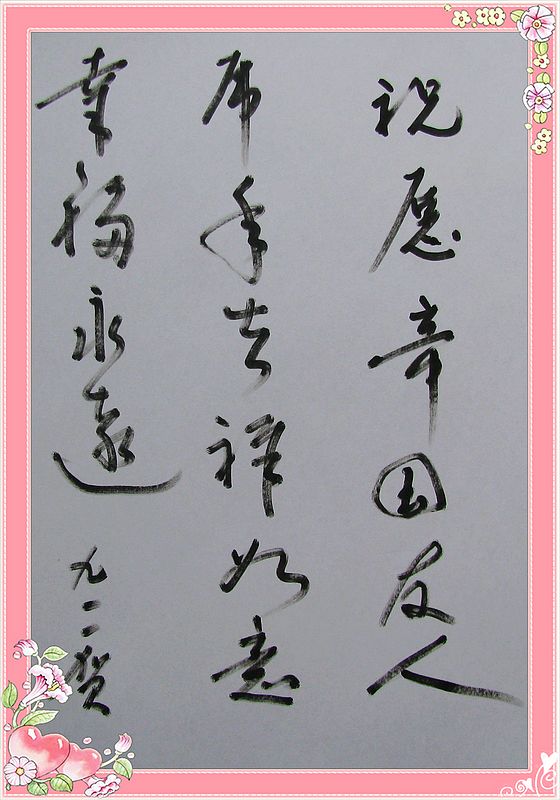 祝愿幸国友人
虎年吉祥如意
幸福永远
九二贺